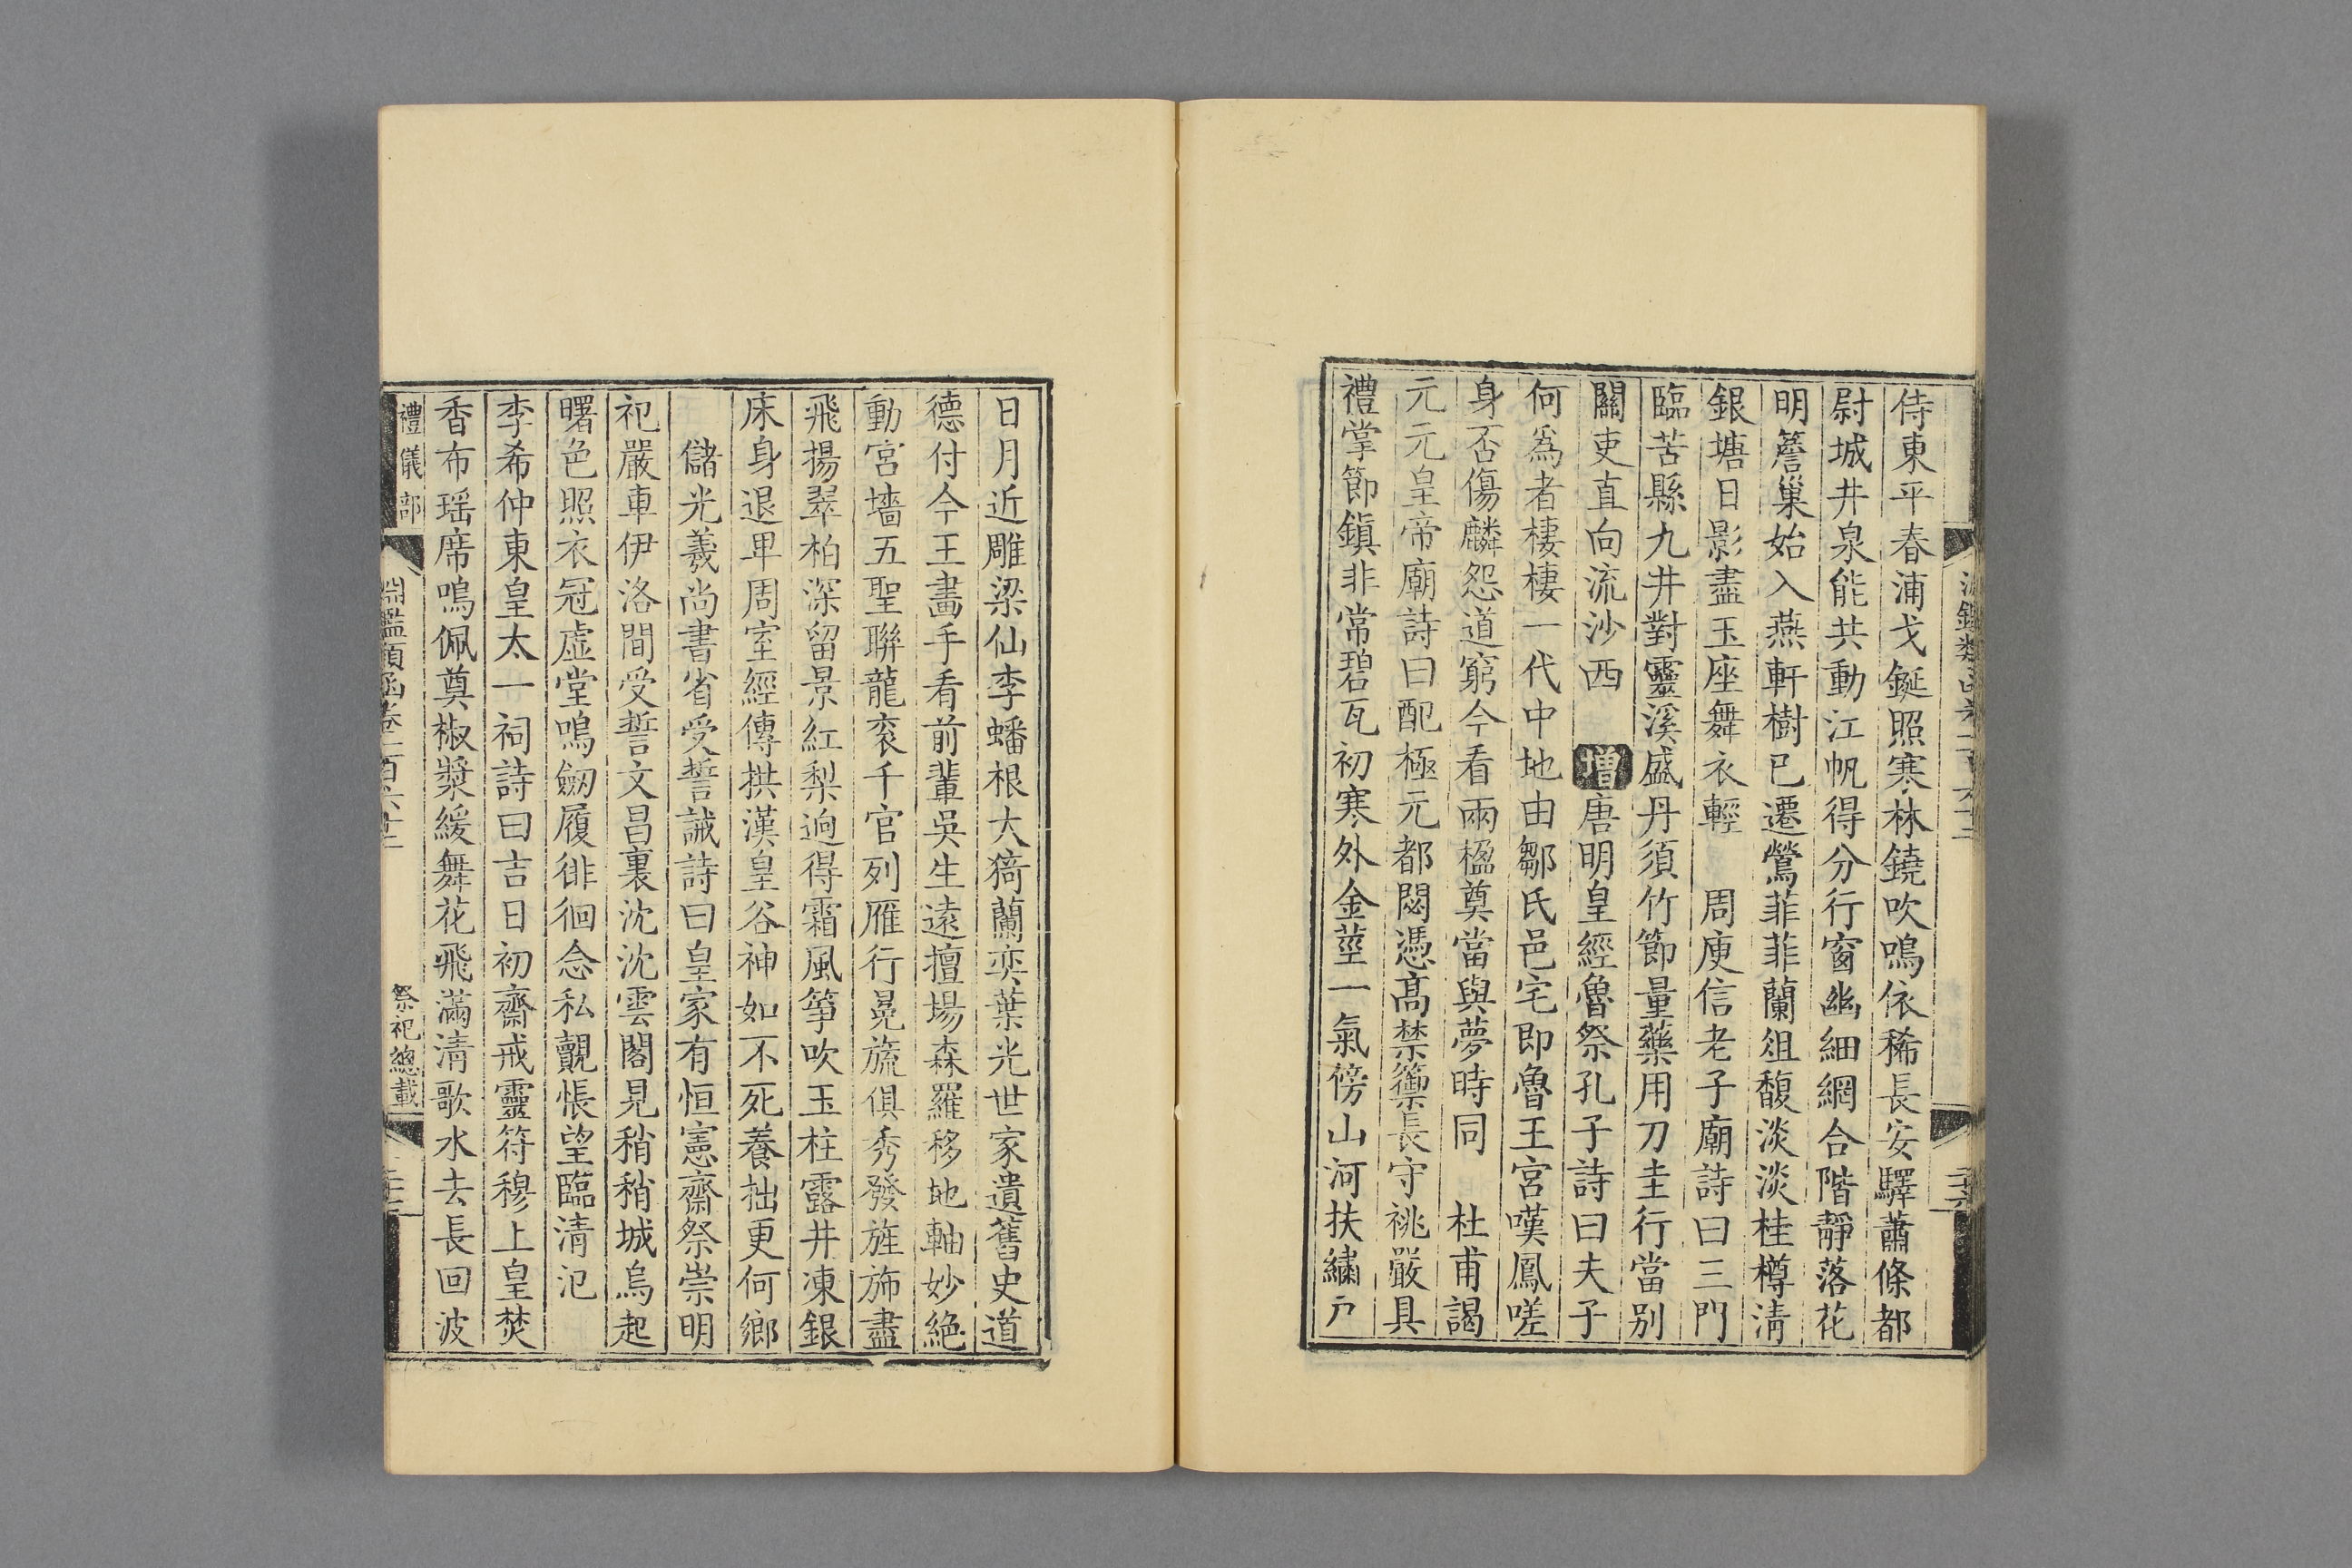 侍東平春浦戈鋋照寒林鐃吹鳴依稀長安驛蕭條都
尉城井泉能共動江帆得分行窗幽細網合階靜落花
明簷巢始入燕軒樹已遷鶯菲菲蘭俎馥淡淡桂樽淸
銀塘日影盡玉座舞衣輕　周庾信老子廟詩曰三門
臨苦縣九井對靈溪盛丹須竹節量藥用刀圭行當別
關吏直向流沙西　增唐明皇經魯祭孔子詩曰夫子
何爲者棲棲一代中地由鄒氏邑宅即魯王宮嘆鳳嗟
身否傷麟怨道窮今看兩楹奠當與夢時同　杜甫謁
元元皇帝廟詩曰配極元都閟憑高禁籞長守祧嚴具
禮掌節鎭非常碧瓦初寒外金莖一氣傍山河扶繡戶
日月近雕梁仙李蟠根大猗蘭奕葉光世家遺舊史道
德付今王畵手看前輩吳生遠擅場森羅移地軸妙絶
動宮墻五聖聯龍衮千官列雁行冕旒俱秀發旌斾盡
飛揚翠柏深留景紅梨逈得霜風筝吹玉柱露井凍銀
床身退卑周室經傳拱漢皇谷神如不死養拙更何鄉
儲光羲尚書省受誓誡詩曰皇家有恒憲齋祭崇明
祀嚴車伊洛間受誓文昌裏沈沈雲閣見稍稍城烏起
曙色照衣冠虛堂鳴劒履徘徊念私覿悵望臨淸汜
李希仲東皇太一祠詩曰吉日初齋戒靈符穆上皇焚
香布瑶席鳴佩奠椒漿緩舞花飛滿淸歌水去長回波
禮儀部
淵鑑類函卷一百六十三
祭祀總載